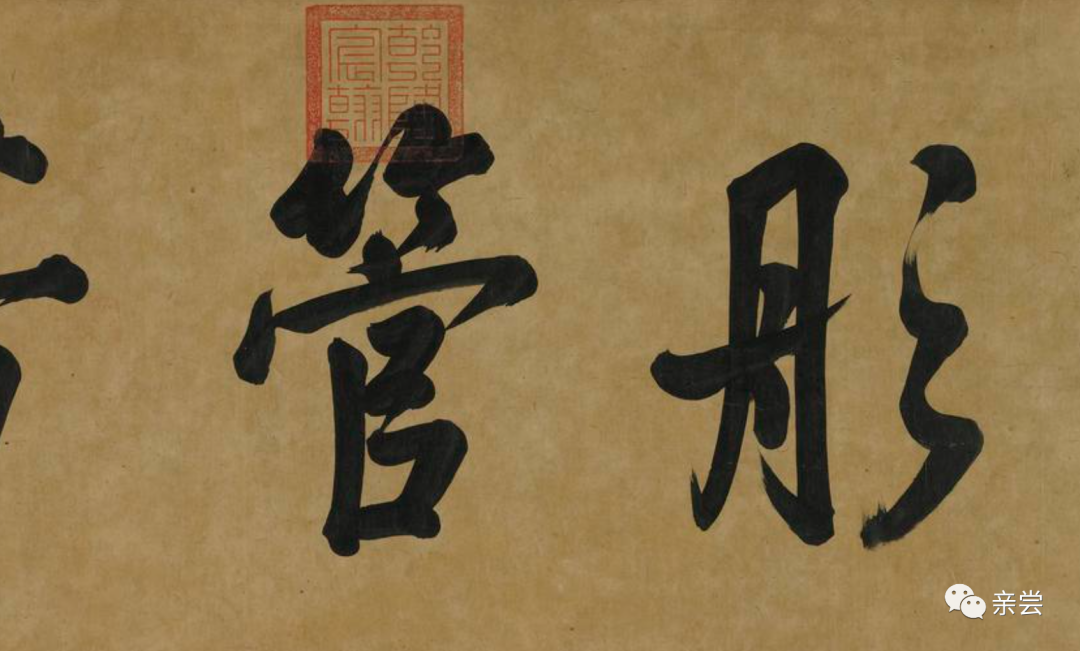 彤管
乾隆
宸翰
亲尝